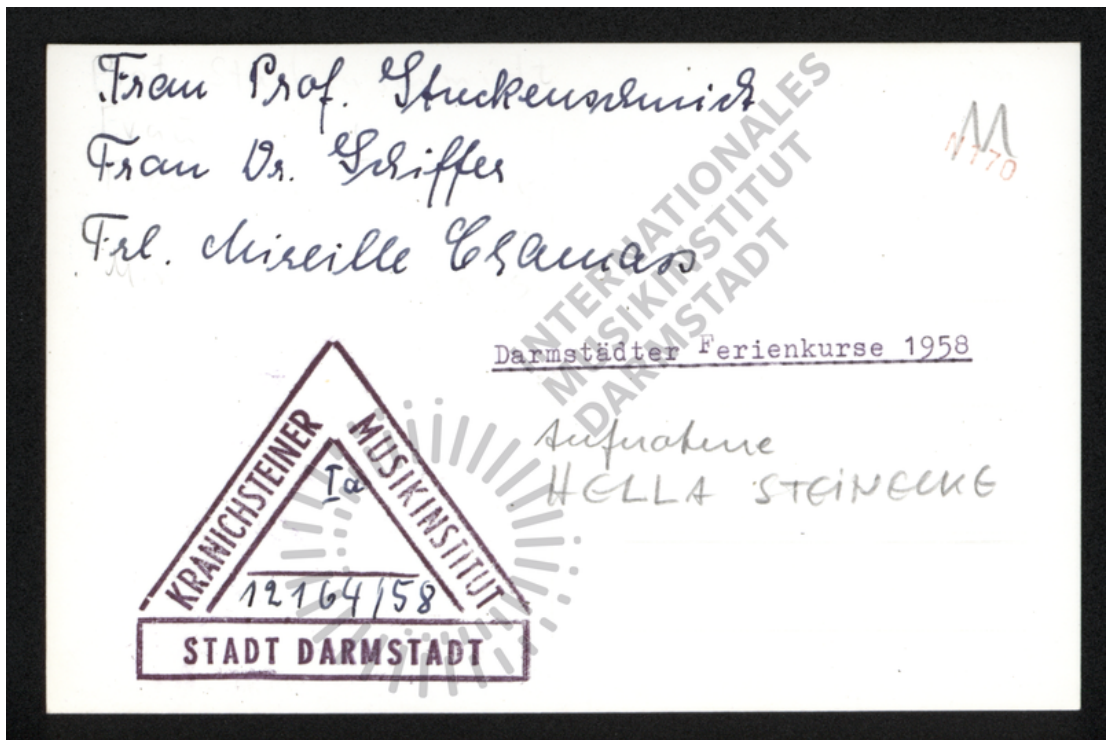 Frau Prof. Stuckenschmidt
Frau Dr. Schiffer
Frl. Mireille
11
N170
INTERNATIONALES
MUSIKINSTITUT
DARMSTADT
Darmstädter Ferienkurse 1958
Aufnahme
HELLA STEINECKE
KRANICHSTEINER
MUSIKINSTITUT
Ia
12164/58
STADT DARMSTADT